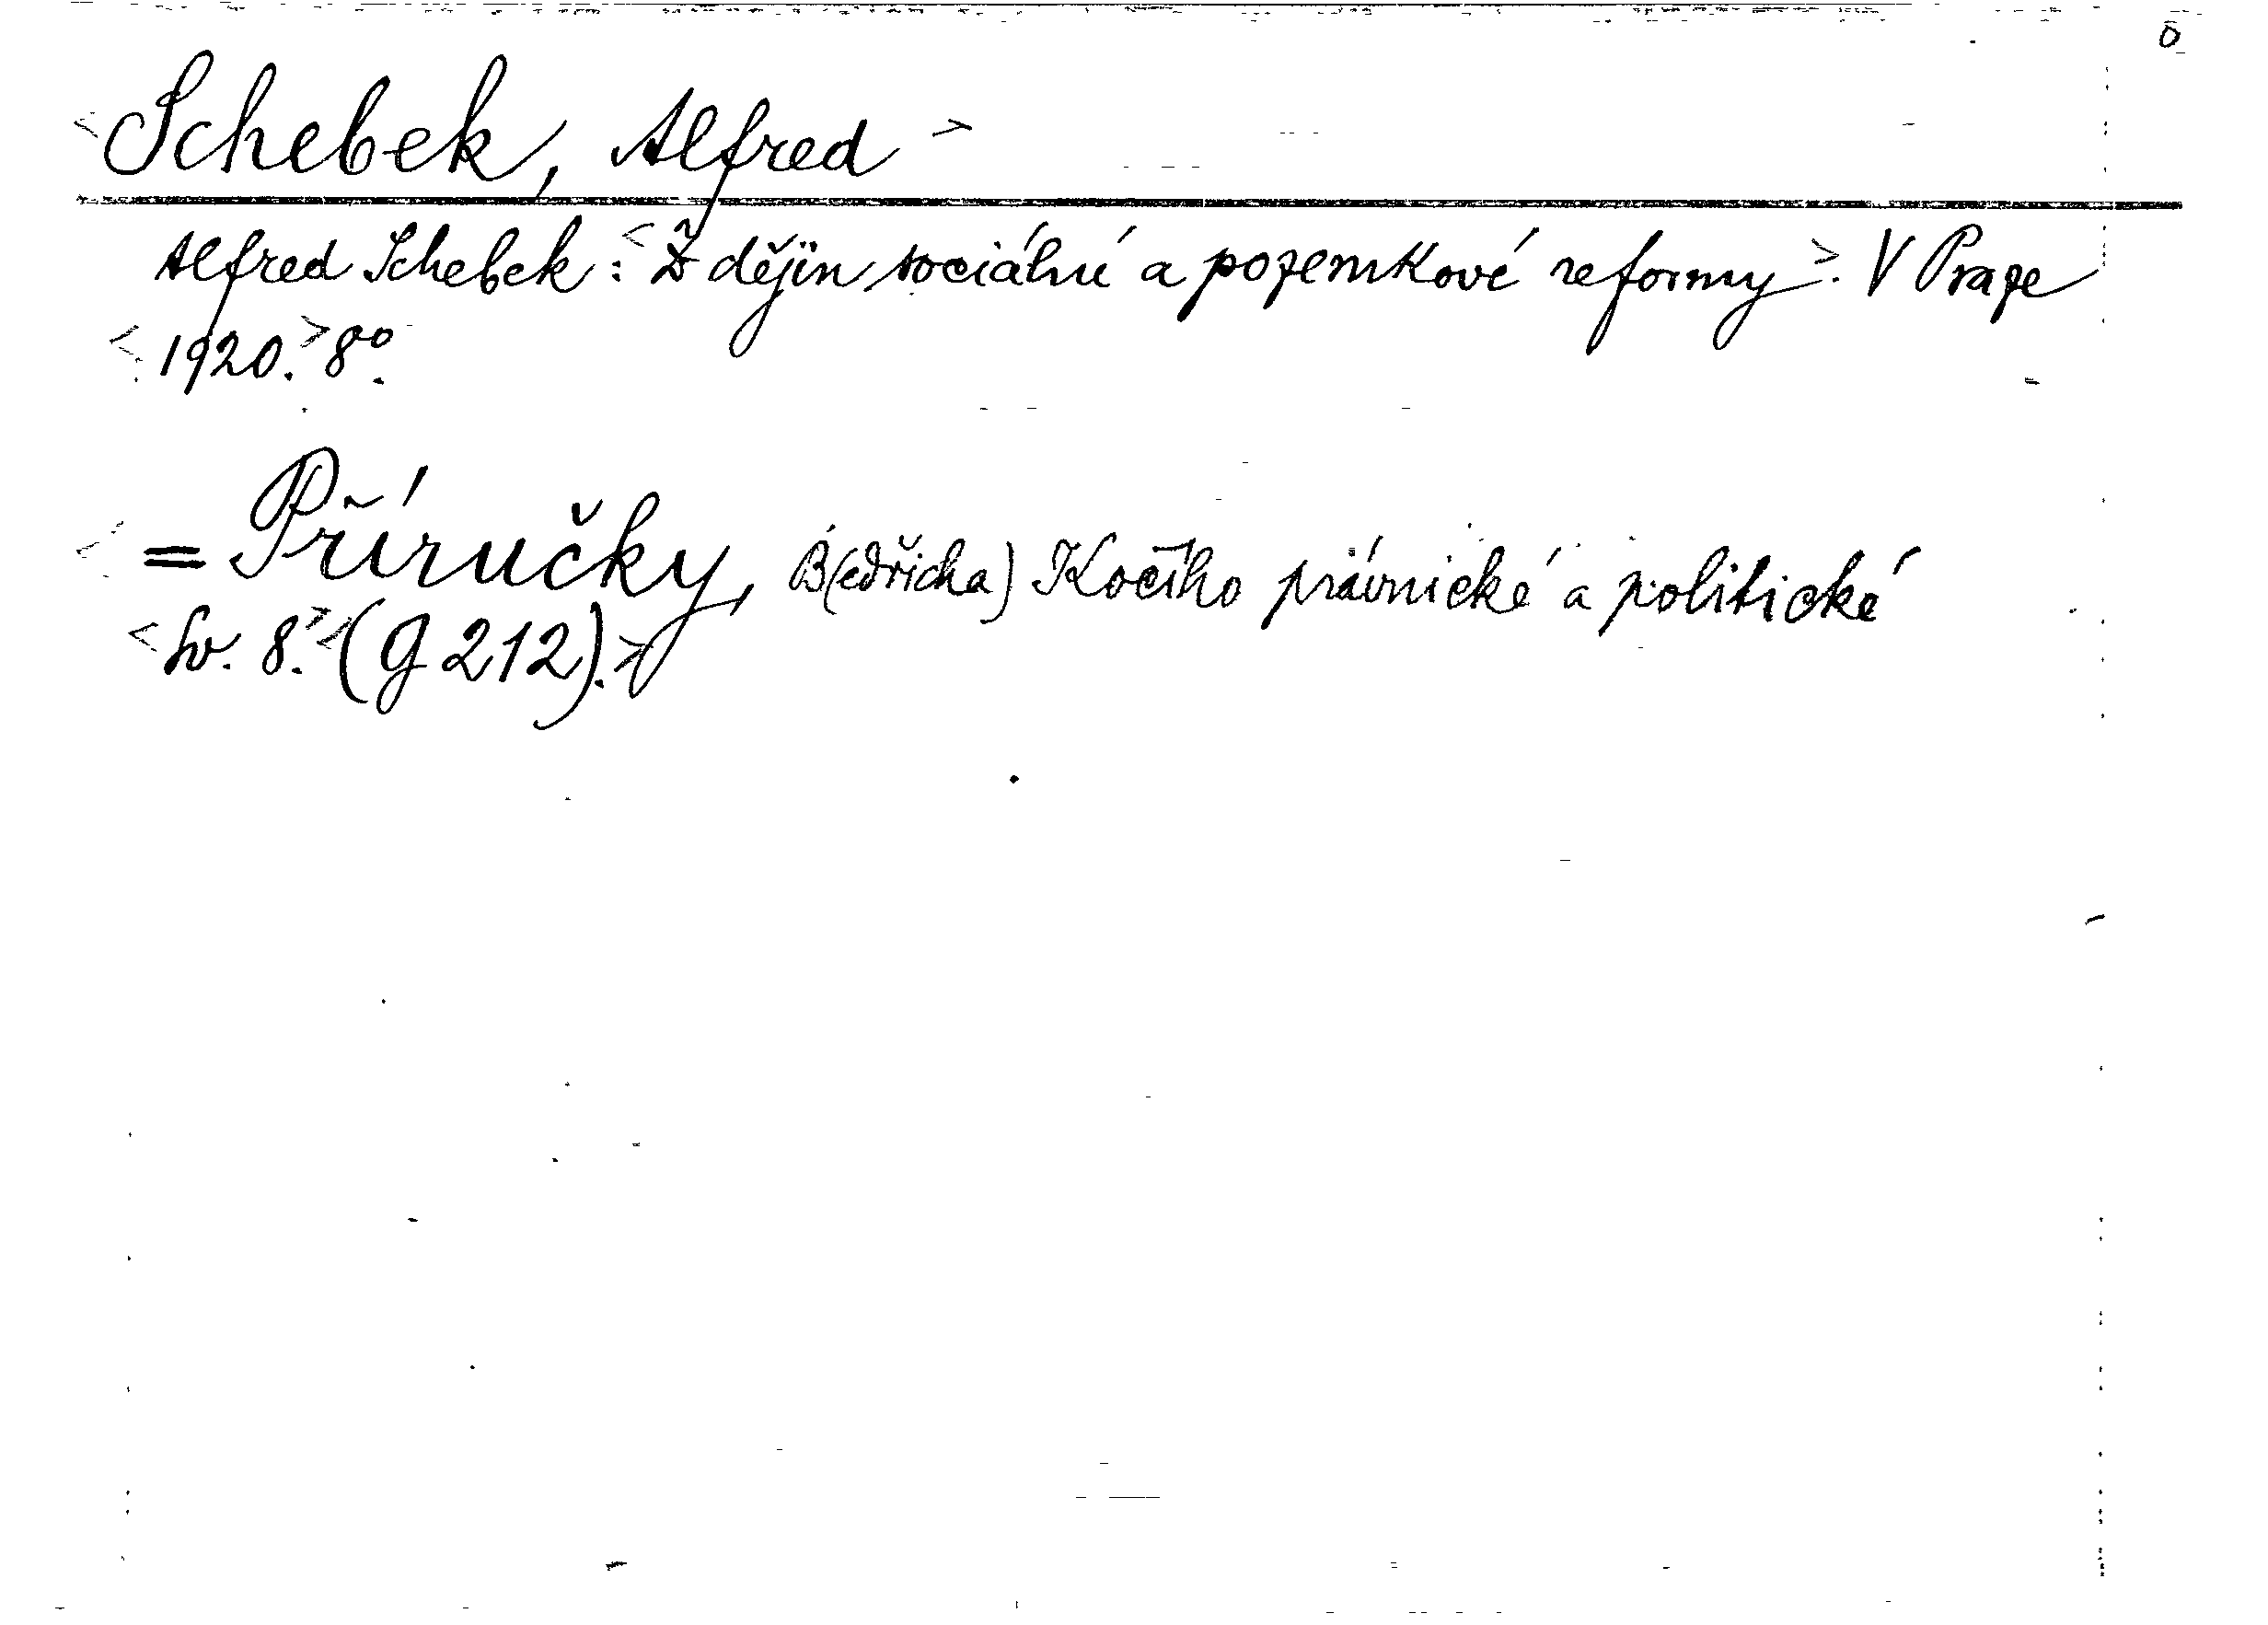 ō
<Schebek, Alfred>
Alfred Schebek: <Z dějin sociální a pozemkové reformy>. V Praze
<1920.> 8°.
<= Příručky, B(edřicha) Kočího právnické a politické
<Sv. 8.> (g 212).>